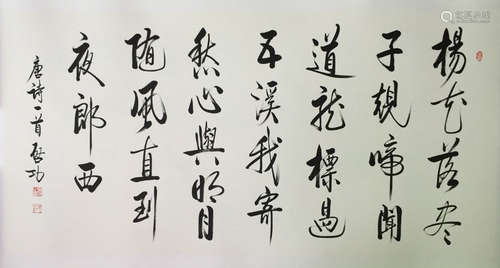 楊花落盡
子規啼聞
道龍標過
五溪我寄
愁心與明月
隨風直到
夜郎西
唐詩一首 啓功